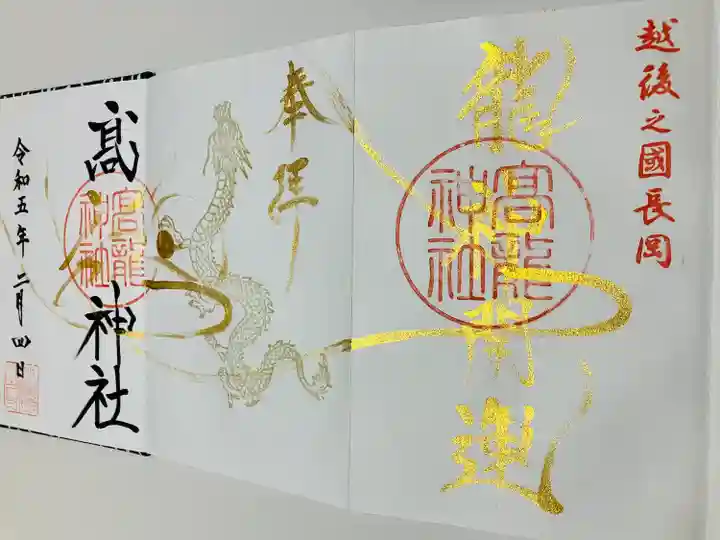 越後之國長岡
龍神開運
高龍神社
奉拝
髙 神社
高龍神社
令和五年 二月四日